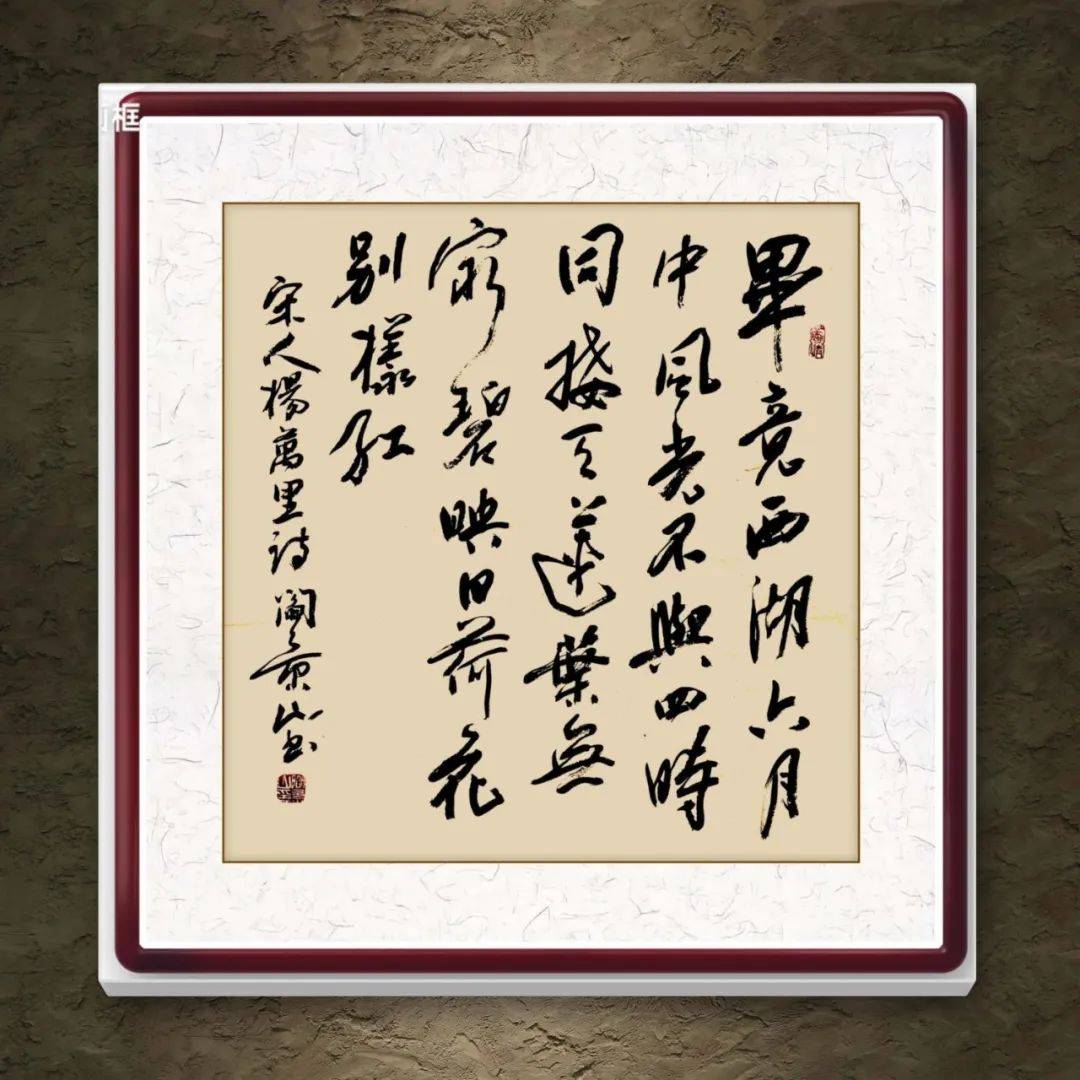 畢竟西湖六月
中風光不與四時
同接天蓮葉無
窮碧映日荷花
別樣紅
宋人楊萬里詩 閻景山書
框